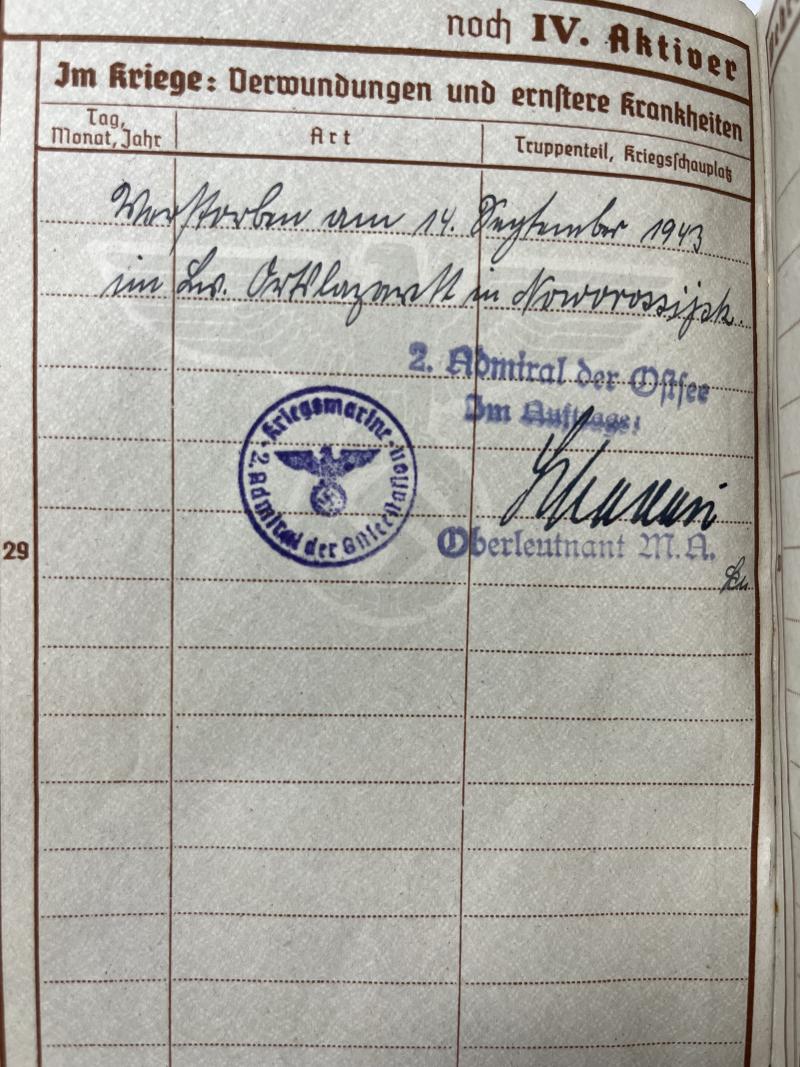 noch IV. Aktiver
Im Kriege: Verwundungen und ernstere Krankheiten
Tag, Monat, Jahr
Art
Truppenteil, Kriegsschauplatz
Verstorben am 14. September 1943
im Lw. Ortslazarett in Noworossijsk.
2. Admiral der Ostsee
Im Auftrage:
Kriegsmarine
2. Admiral der Ostseestation
Oberleutnant M.A.
29